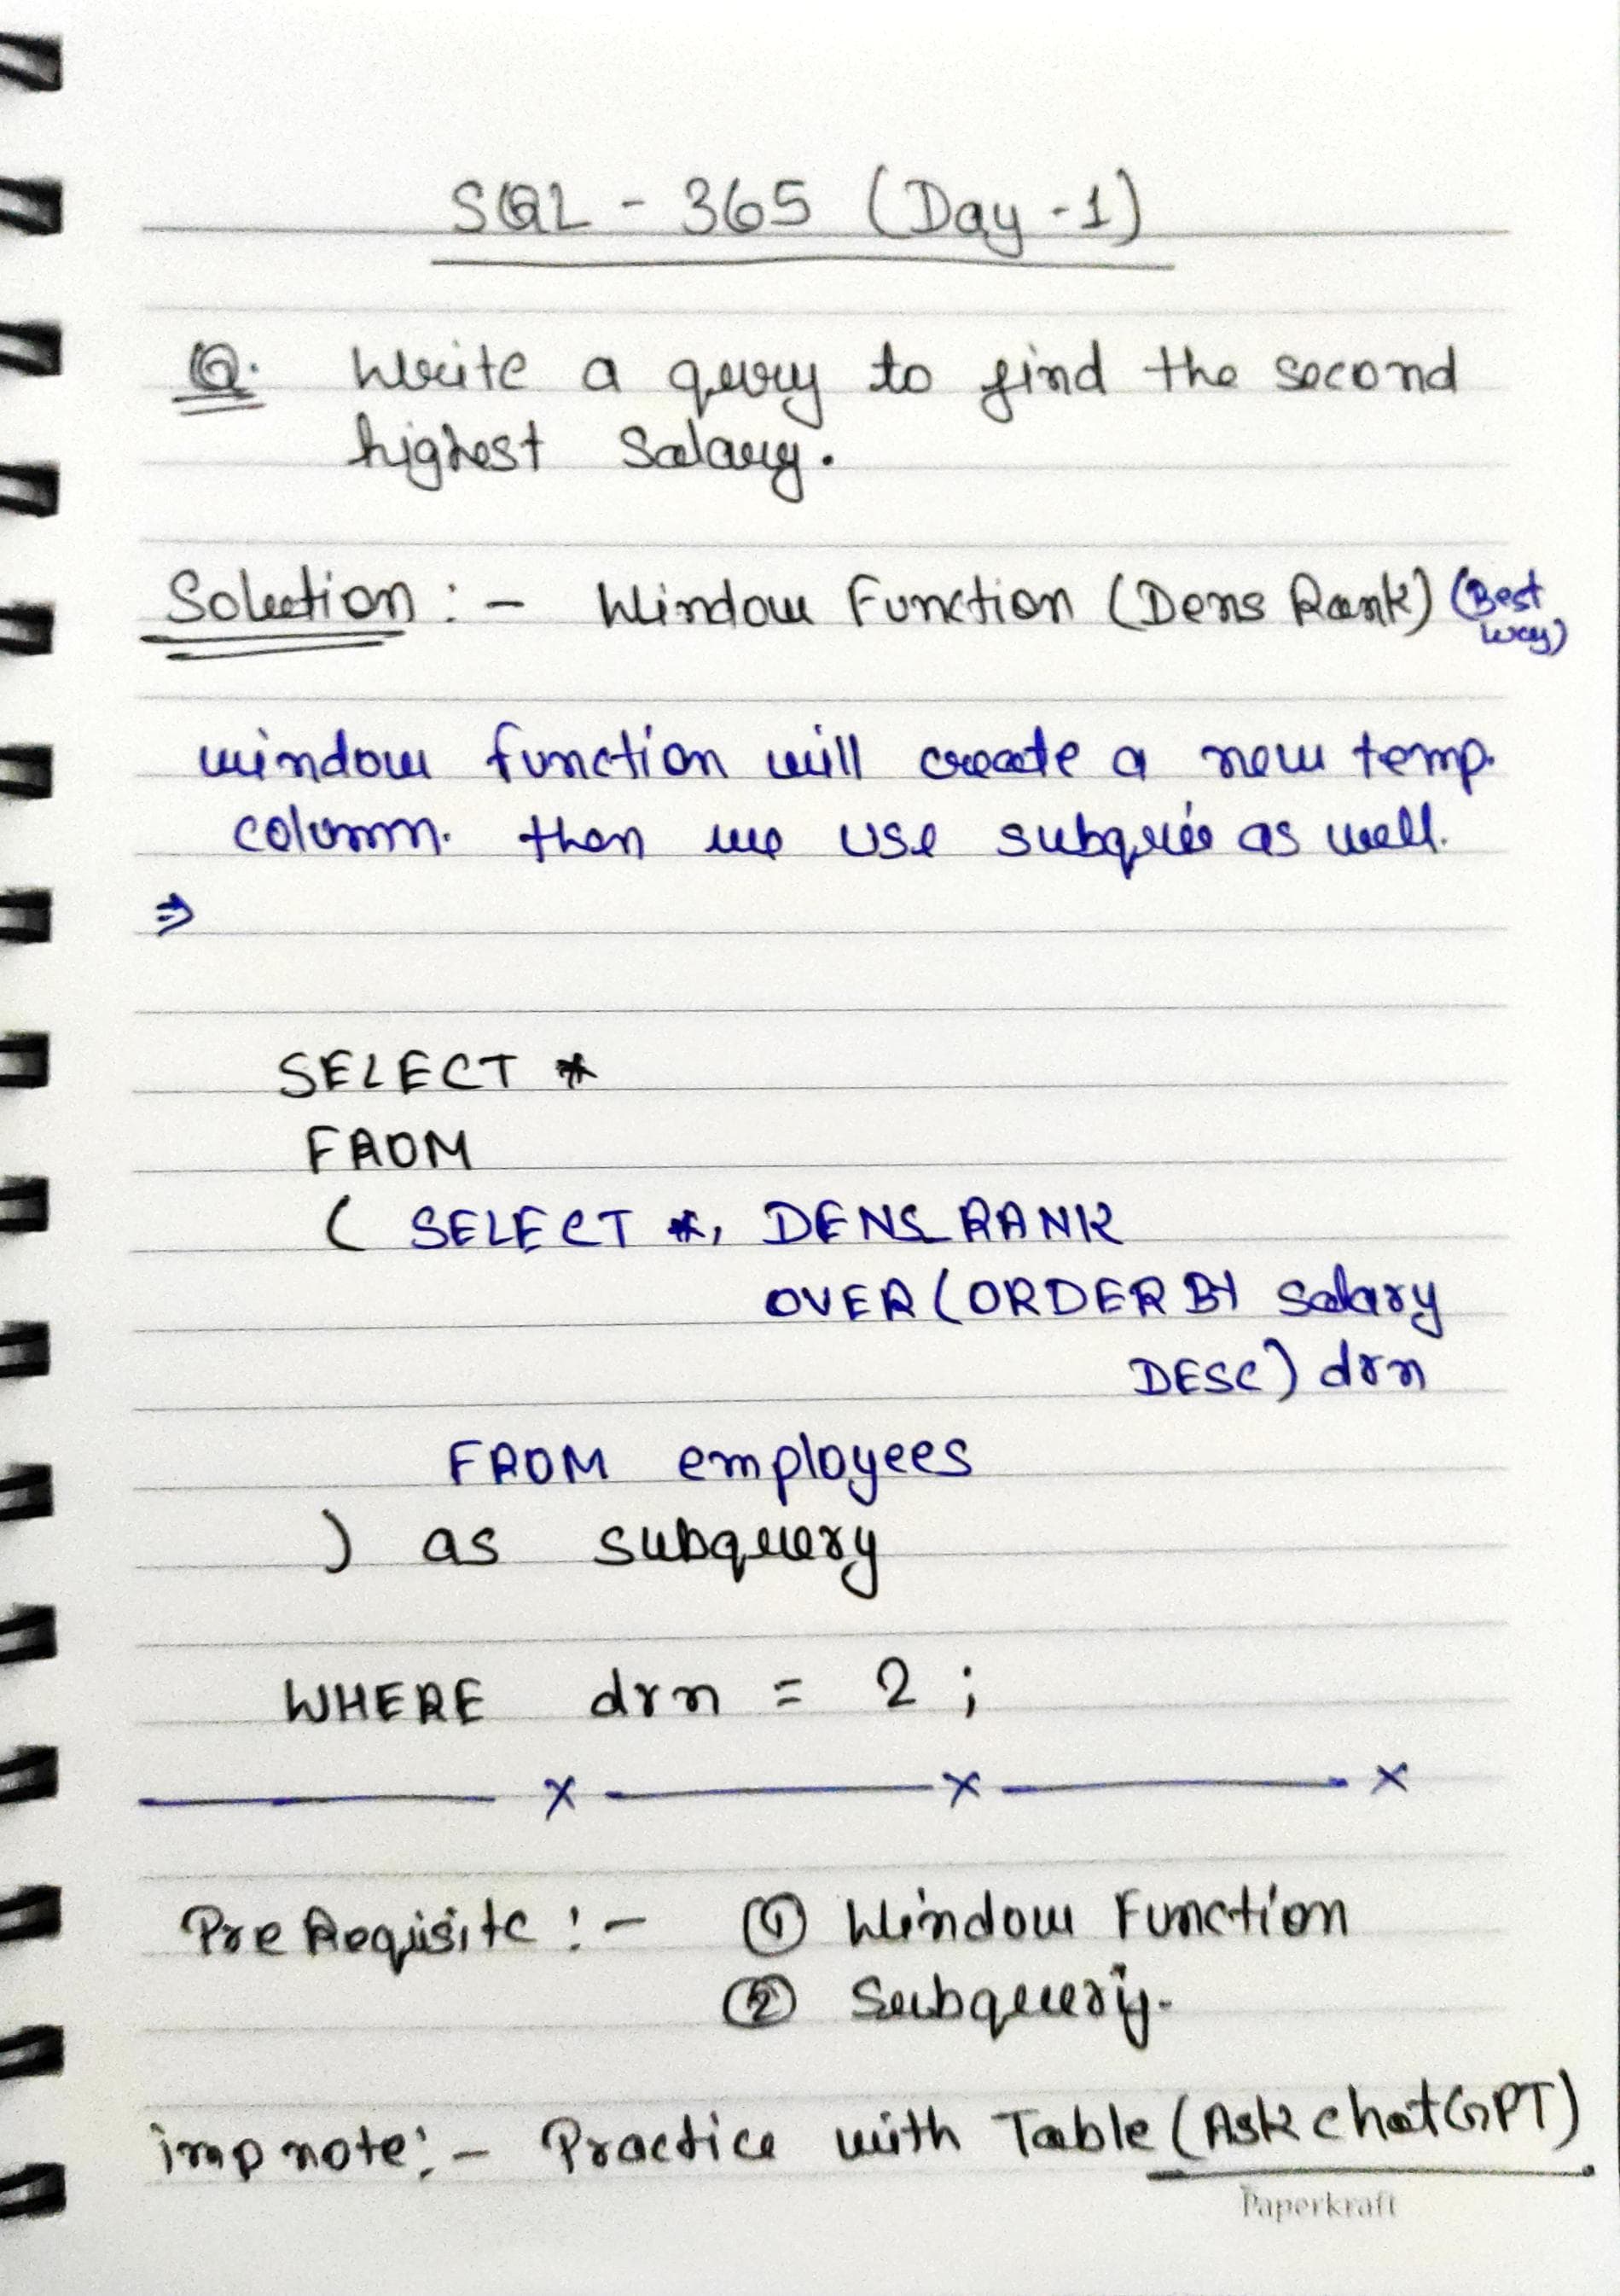 SQL - 365 (Day -1)
Q. Write a query to find the second
highest Salary.
Solution :- Window Function (Dens Rank) (Best
way)
window function will create a new temp.
column. then we use subquie as well.
⇒
SELECT *
FROM
( SELECT *, DENS_RANK
OVER (ORDER BY Salary
DESC) drn
FROM employees
) as subquery
WHERE drn = 2 ;
x x x
Pre Requisite :- ① Window Function
② Subquery.
imp note:- Practice with Table (Ask chatGPT)
Paperkraft